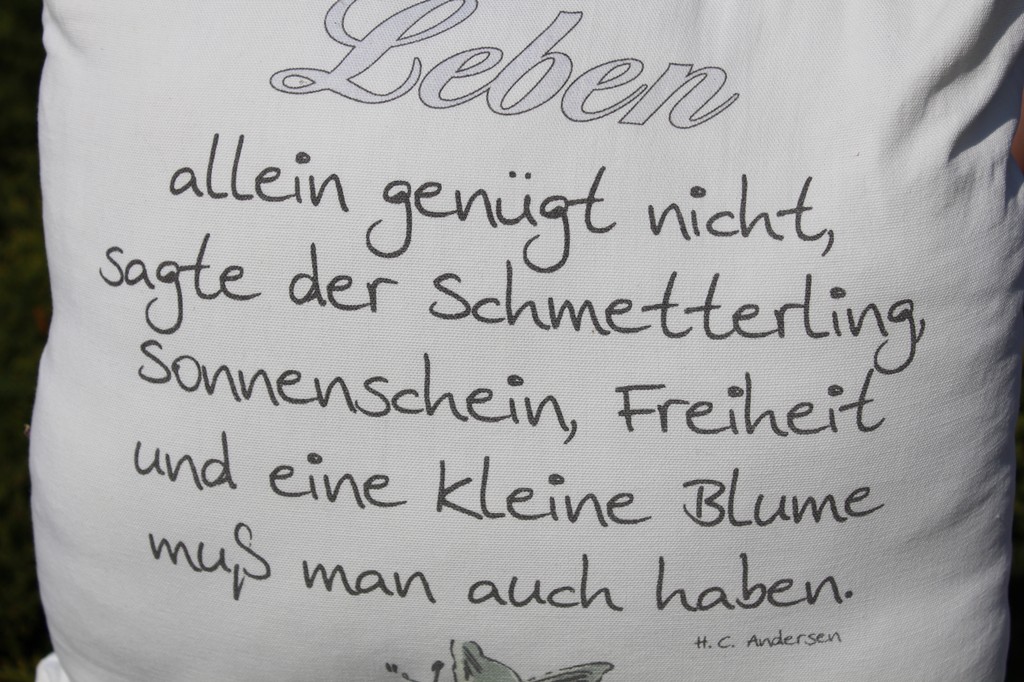 Leben
allein genügt nicht,
sagte der Schmetterling,
Sonnenschein, Freiheit
und eine kleine Blume
muß man auch haben.
H. C. Andersen